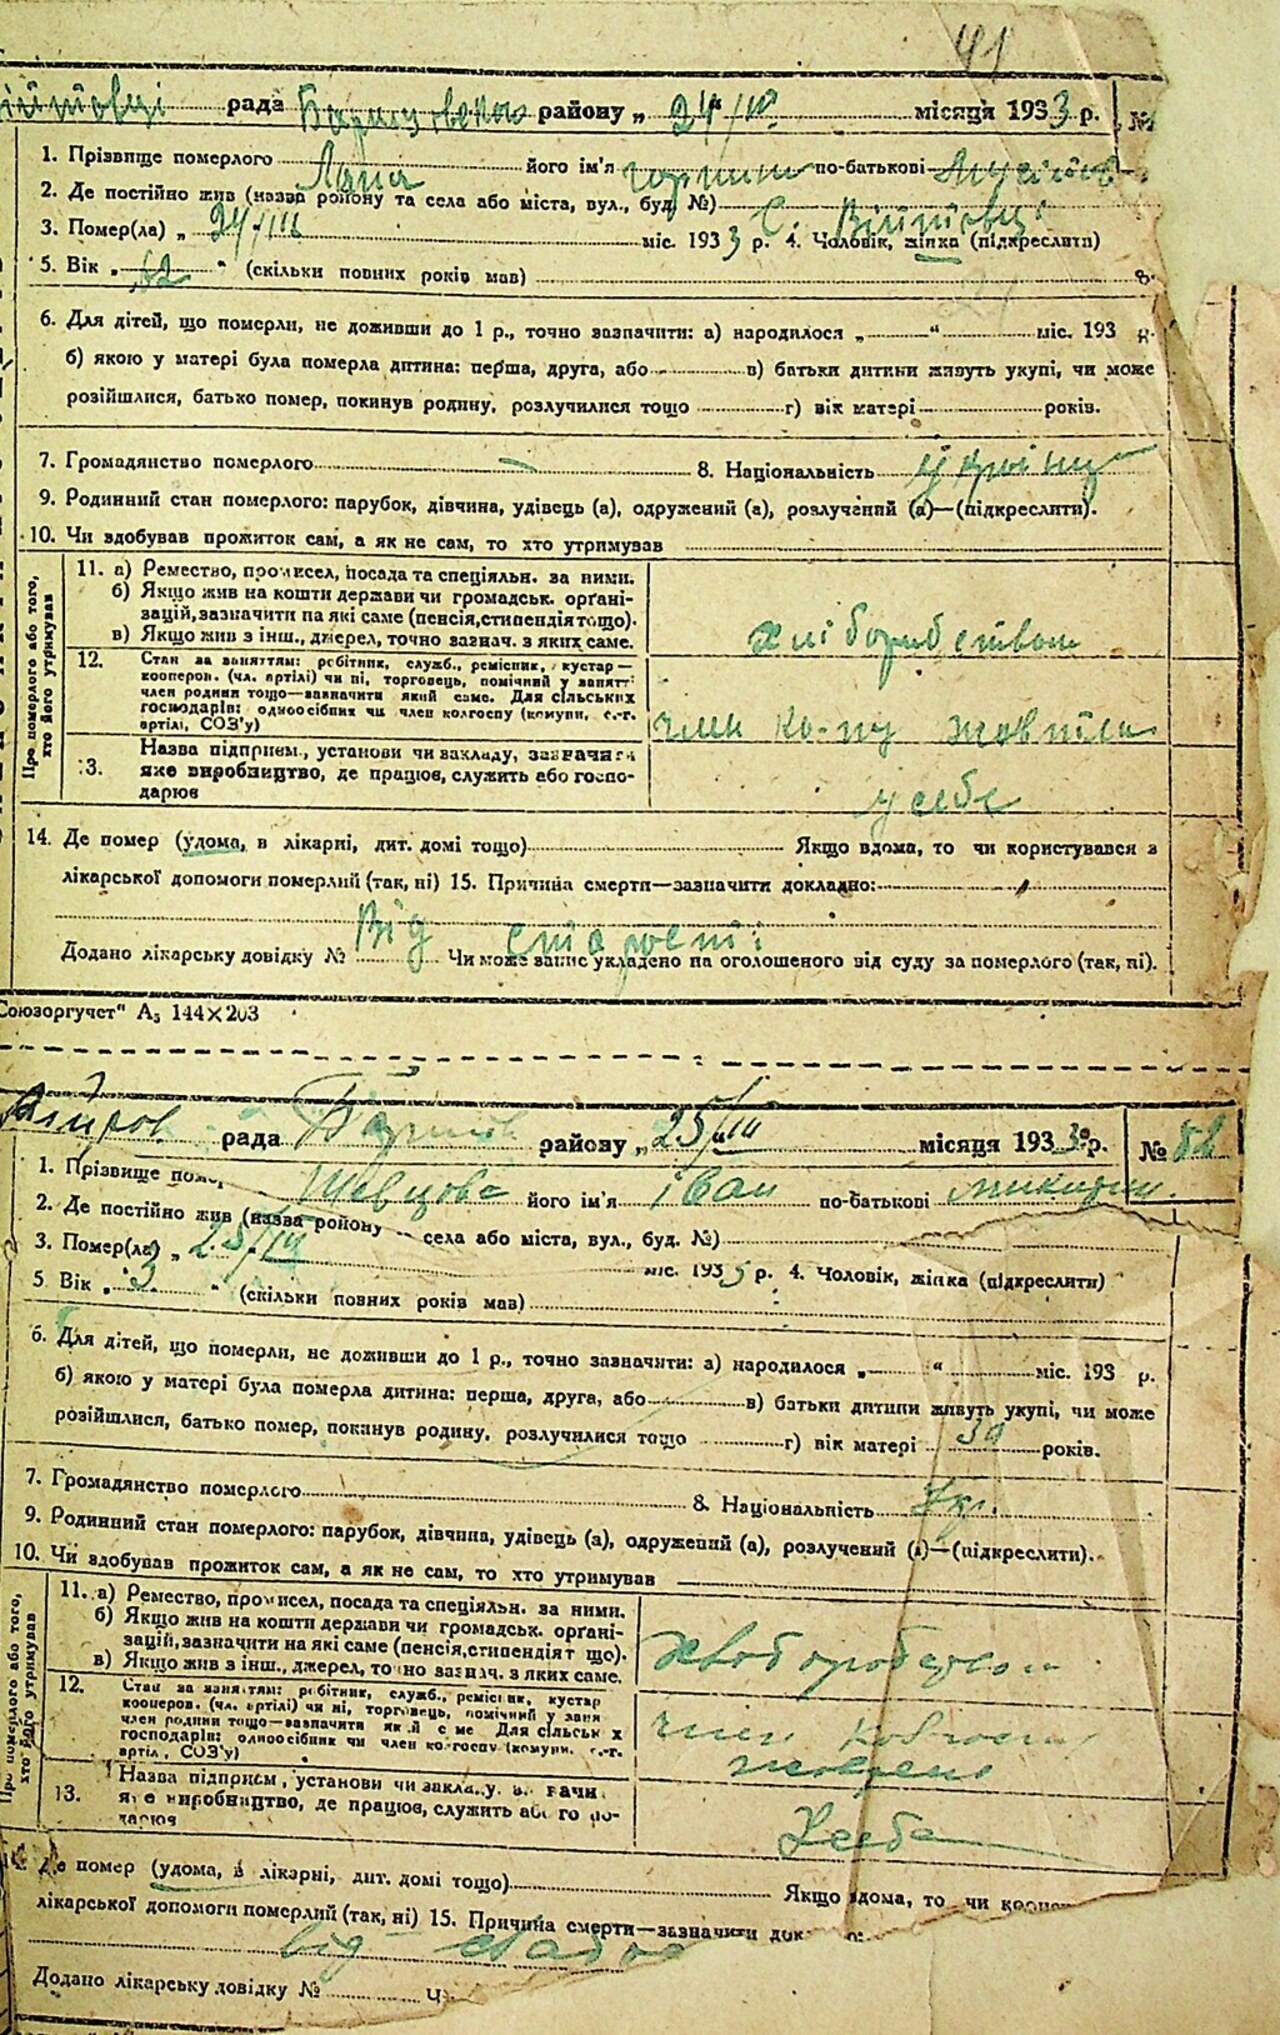 41
рада району „ 24/III місяця 1933 р. №
1. Прізвище померлого його ім'я по-батькові
2. Де постійно жив (назва району та села або міста, вул., буд. №) с. Війтовці
3. Помер(ла) „ 24/III міс. 1933 р. 4. Чоловік, жінка (підкреслити)
5. Вік „ 62 “ (скільки повних років мав)
6. Для дітей, що померли, не доживши до 1 р., точно зазначити: а) народилося „ “ міс. 193 р.
б) якою у матері була померла дитина: перша, друга, або в) батьки дитини живуть укупі, чи може
розійшлися, батько помер, покинув родину, розлучилися тощо г) вік матері років.
7. Громадянство померлого — 8. Національність
9. Родинний стан померлого: парубок, дівчина, удівець (а), одружений (а), розлучений (а)—(підкреслити).
10. Чи здобував прожиток сам, а як не сам, то хто утримував
Про померлого або того, хто його утримував
11. а) Ремество, промисел, посада та спеціяльн. за ними.
б) Якщо жив на кошти держави чи громадськ. орґані-
зацій, зазначити на які саме (пенсія, стипендія тощо).
в) Якщо жив з інш., джерел, точно зазнач. з яких саме.
хліборобством
12. Стан за заняттям: робітник, служб., ремісник, кустар—
кооперов. (чл. артілі) чи ні, торговець, помічний у занятті
член родини тощо—зазначити який саме. Для сільських
господарів: одноосібник чи член колгоспу (комуни, с.-г.
артілі, СОЗ'у)
член ко-пу
13. Назва підприєм., установи чи закладу, зазначити
яке виробництво, де працює, служить або госпо-
дарює
у себе
14. Де помер (удома, в лікарні, дит. домі тощо) Якщо вдома, то чи користувався з
лікарської допомоги померлий (так, ні) 15. Причина смерти—зазначити докладно:
Від старості
Додано лікарську довідку № Чи може запис укладено на оголошеного від суду за померлого (так, ні).
Союзоргучет" А₃ 144×203
рада району „ 25/III місяця 1933 р. № 82
1. Прізвище пом його ім'я Іван по-батькові
2. Де постійно жив (назва району села або міста, вул., буд. №)
3. Помер(ла) „ 25/III міс. 1933 р. 4. Чоловік, жінка (підкреслити)
5 Вік „ “ (скільки повних років мав)
6. Для дітей, що померли, не доживши до 1 р., точно зазначити: а) народилося „ “ міс. 193 р.
б) якою у матері була померла дитина: перша, друга, або в) батьки дитини живуть укупі, чи може
розійшлися, батько помер, покинув родину, розлучилися тощо г) вік матері років.
7. Громадянство померлого 8. Національність Укр.
9. Родинний стан померлого: парубок, дівчина, удівець (а), одружений (а), розлучений (а)—(підкреслити).
10. Чи здобував прожиток сам, а як не сам, то хто утримував
Про померлого або того, хто його утримував
11. а) Ремество, промисел, посада та спеціяльн. за ними.
б) Якщо жив на кошти держави чи громадськ. орґані-
зацій, зазначити на які саме (пенсія, стипендія т що).
в) Якщо жив з інш., джерел, точно зазнач. з яких саме.
12. Стан за заняттям: робітник, служб., ремісник, кустар
кооперов. (чл. артілі) чи ні, торговець, помічний у заня
член родини тощо—зазначити який саме Для сільських
господарів: одноосібник чи член колгоспу (комуни, с.-г.
артіл, СОЗ'у)
член
13. Назва підприєм, установи чи закладу, зазначи
яке виробництво, де працює, служить або го по-
дарює
У себе
14. Де помер (удома, в лікарні, дит. домі тощо) Якщо вдома, то чи
лікарської допомоги померлий (так, ні) 15. Причина смерти—зазначити док
від
Додано лікарську довідку № Ч